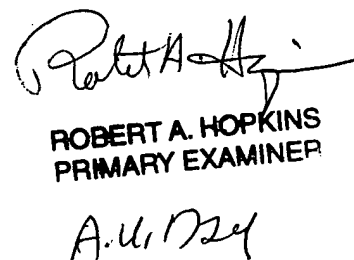 Robert A. Hopkins
ROBERT A. HOPKINS
PRIMARY EXAMINER
A.U.